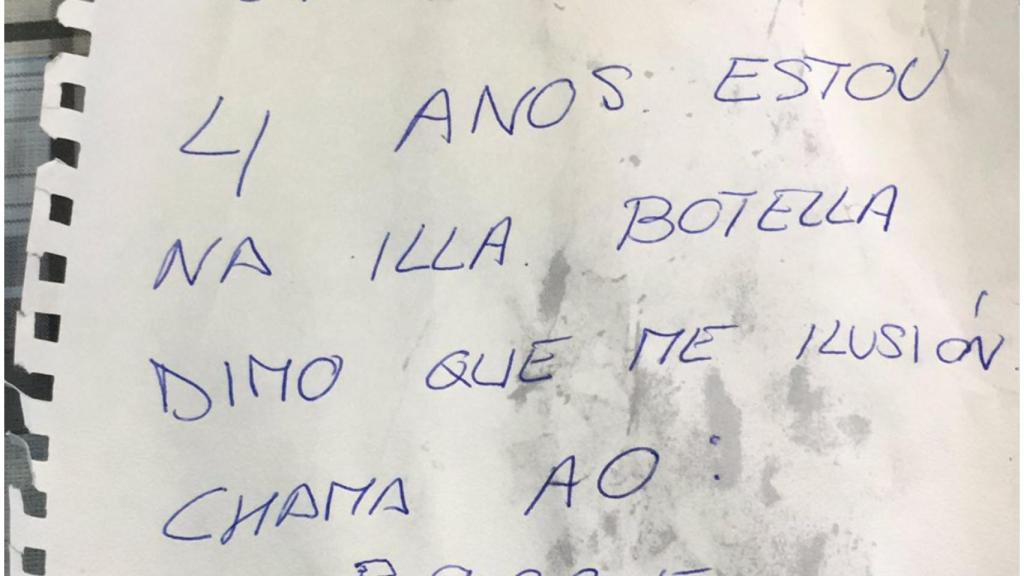 4 ANOS ESTOU
NA ILLA BOTELLA
DIMO QUE ME ILUSIÓN
CHAMA AO: